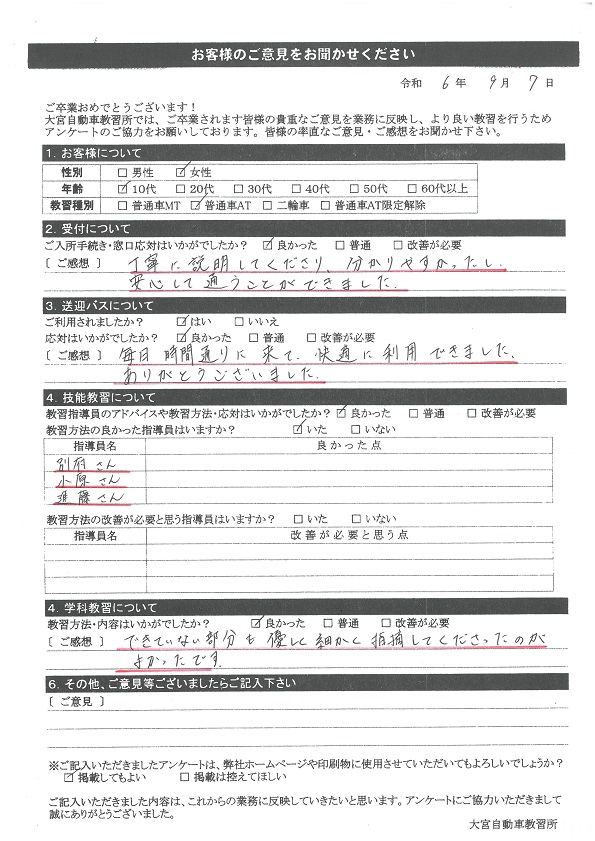 お客様のご意見をお聞かせください
令和 6年 9月 7日
ご卒業おめでとうございます！
大宮自動車教習所では、ご卒業されます皆様の貴重なご意見を業務に反映し、より良い教習を行うため
アンケートのご協力をお願いしております。皆様の率直なご意見・ご感想をお聞かせ下さい。
1. お客様について
性別 □ 男性 ☑ 女性
年齢 ☑ 10代 □ 20代 □ 30代 □ 40代 □ 50代 □ 60代以上
教習種別 □ 普通車MT ☑ 普通車AT □ 二輪車 □ 普通車AT限定解除
2. 受付について
ご入所手続き・窓口応対はいかがでしたか？ ☑ 良かった □ 普通 □ 改善が必要
〔 ご感想 〕 丁寧に説明してくださり、分かりやすかったし、
安心して通うことができました。
3. 送迎バスについて
ご利用されましたか？ ☑ はい □ いいえ
応対はいかがでしたか？ ☑ 良かった □ 普通 □ 改善が必要
〔 ご感想 〕 毎日時間通りに来て、快適に利用できました。
ありがとうございました。
4. 技能教習について
教習指導員のアドバイスや教習方法・応対はいかがでしたか？ ☑ 良かった □ 普通 □ 改善が必要
教習方法の良かった指導員はいますか？ ☑ いた □ いない
指導員名 良かった点
別府さん
小原さん
進藤さん
教習方法の改善が必要と思う指導員はいますか？ □ いた □ いない
指導員名 改善が必要と思う点
4. 学科教習について
教習方法・内容はいかがでしたか？ ☑ 良かった □ 普通 □ 改善が必要
〔 ご感想 〕 できていない部分も優しく細かく指摘してくださったのが
よかったです。
6. その他、ご意見等ございましたらご記入下さい
〔 ご意見 〕
※ご記入いただきましたアンケートは、弊社ホームページや印刷物に使用させていただいてもよろしいでしょうか？
☑ 掲載してもよい □ 掲載は控えてほしい
ご記入いただきました内容は、これからの業務に反映していきたいと思います。アンケートにご協力いただきまして
誠にありがとうございました。
大宮自動車教習所